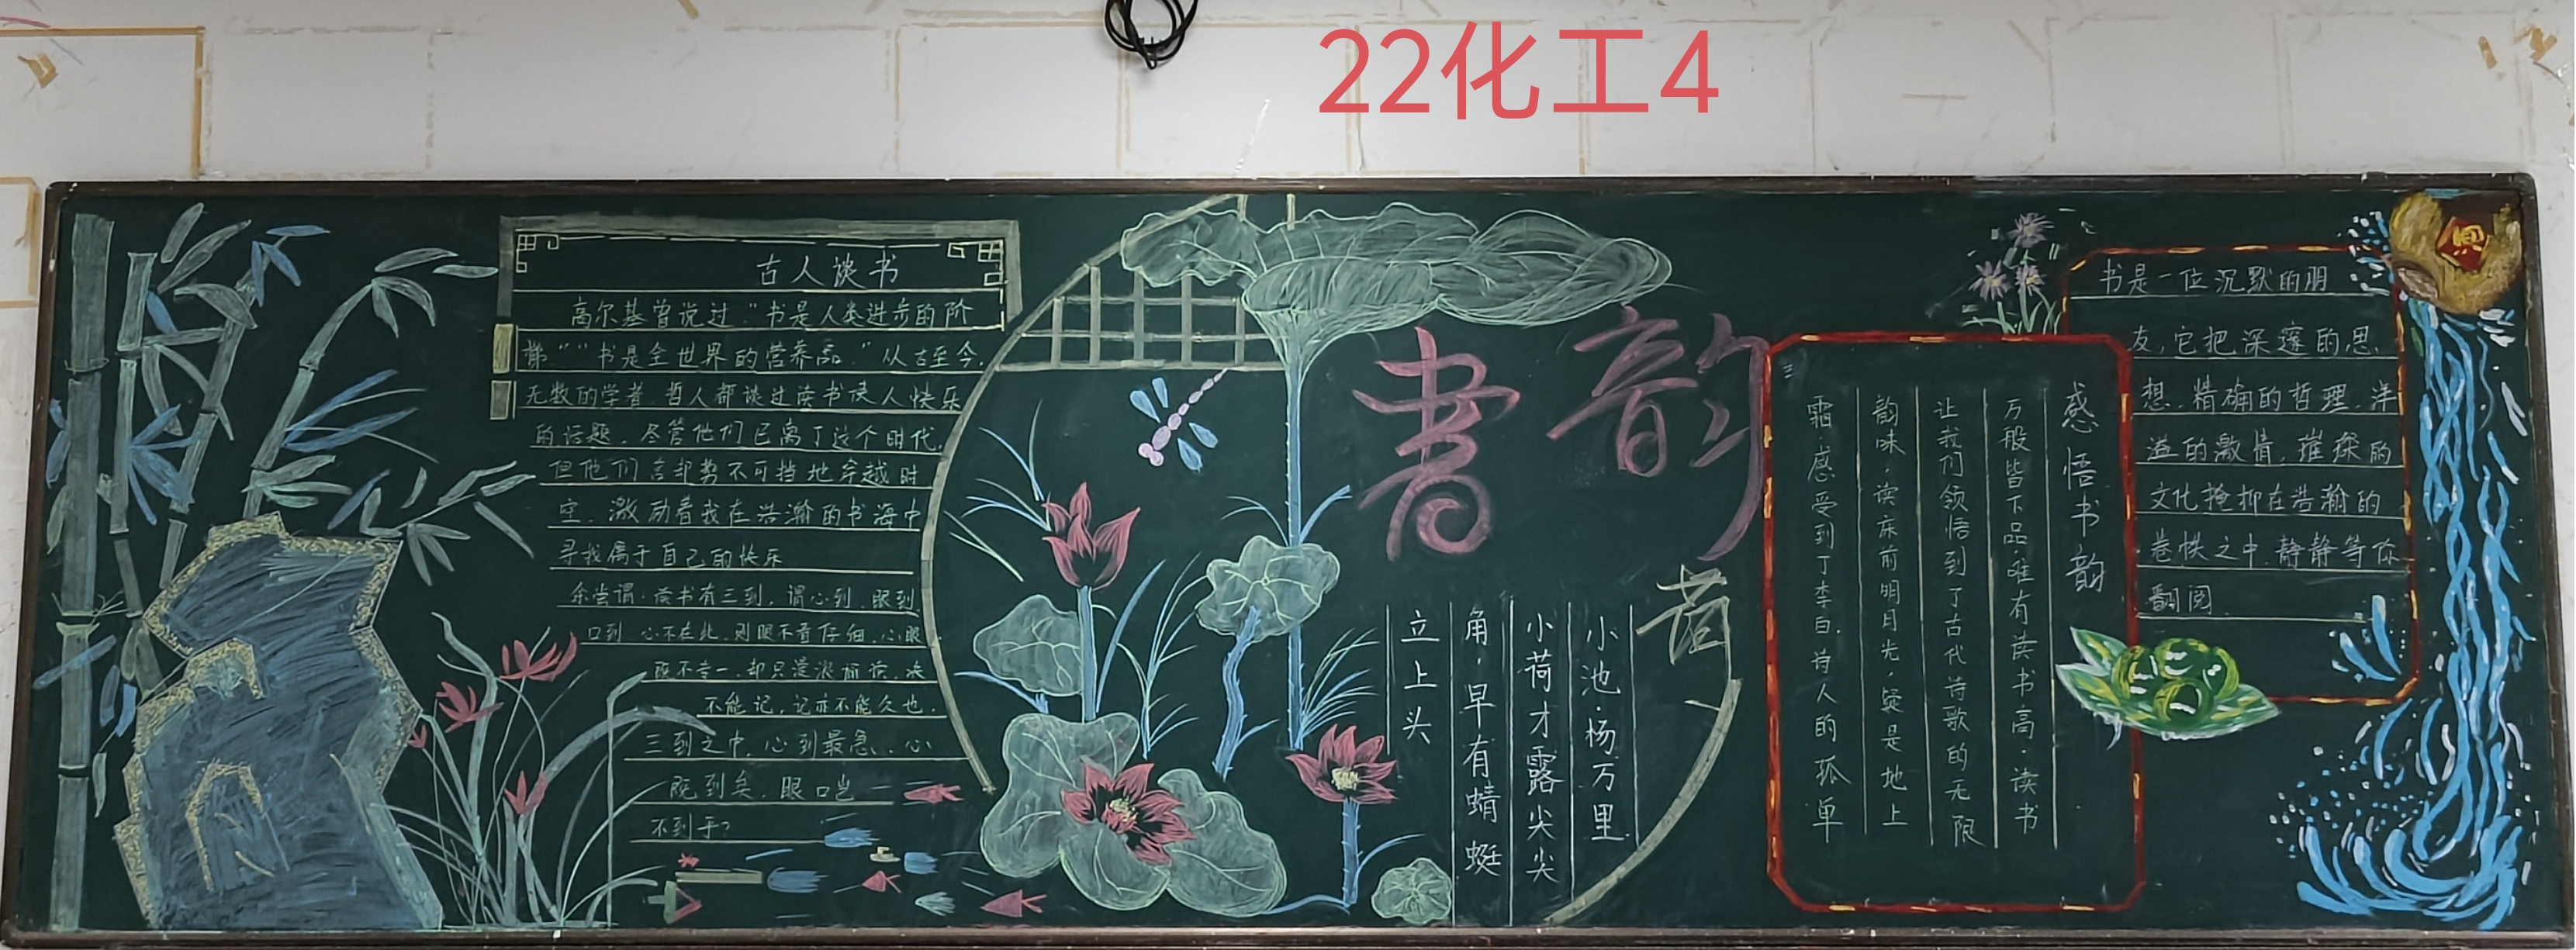 22化工4
古人谈书
高尔基曾说过"书是人类进步的阶
梯""书是全世界的营养品."从古至今,
无数的学者.哲人都谈过读书使人快乐
的话题,尽管他们已离了这个时代,
但他们言却势不可挡地穿越时
空.激励着我在浩瀚的书海中
寻找属于自己的快乐
余尝谓.读书有三到,谓心到.眼到
口到.心不在此.则眼不看仔细.心眼
既不专一.却只漫浪诵读.决
不能记,记亦不能久也.
三到之中,心到最急.心
既到矣.眼口岂
不到乎?
書韵
荷
小池·杨万里
小荷才露尖尖
角·早有蜻蜓
立上头
感悟书韵
万般皆下品·唯有读书高·读书
让我们领悟到了古代诗歌的无限
韵味·读床前明月光·疑是地上
霜·感受到了李白.诗人的孤单
书是一位沉默的朋
友,它把深邃的思
想.精确的哲理.洋
溢的激情,璀璨的
文化掩抑在浩瀚的
卷帙之中.静静等你
翻阅